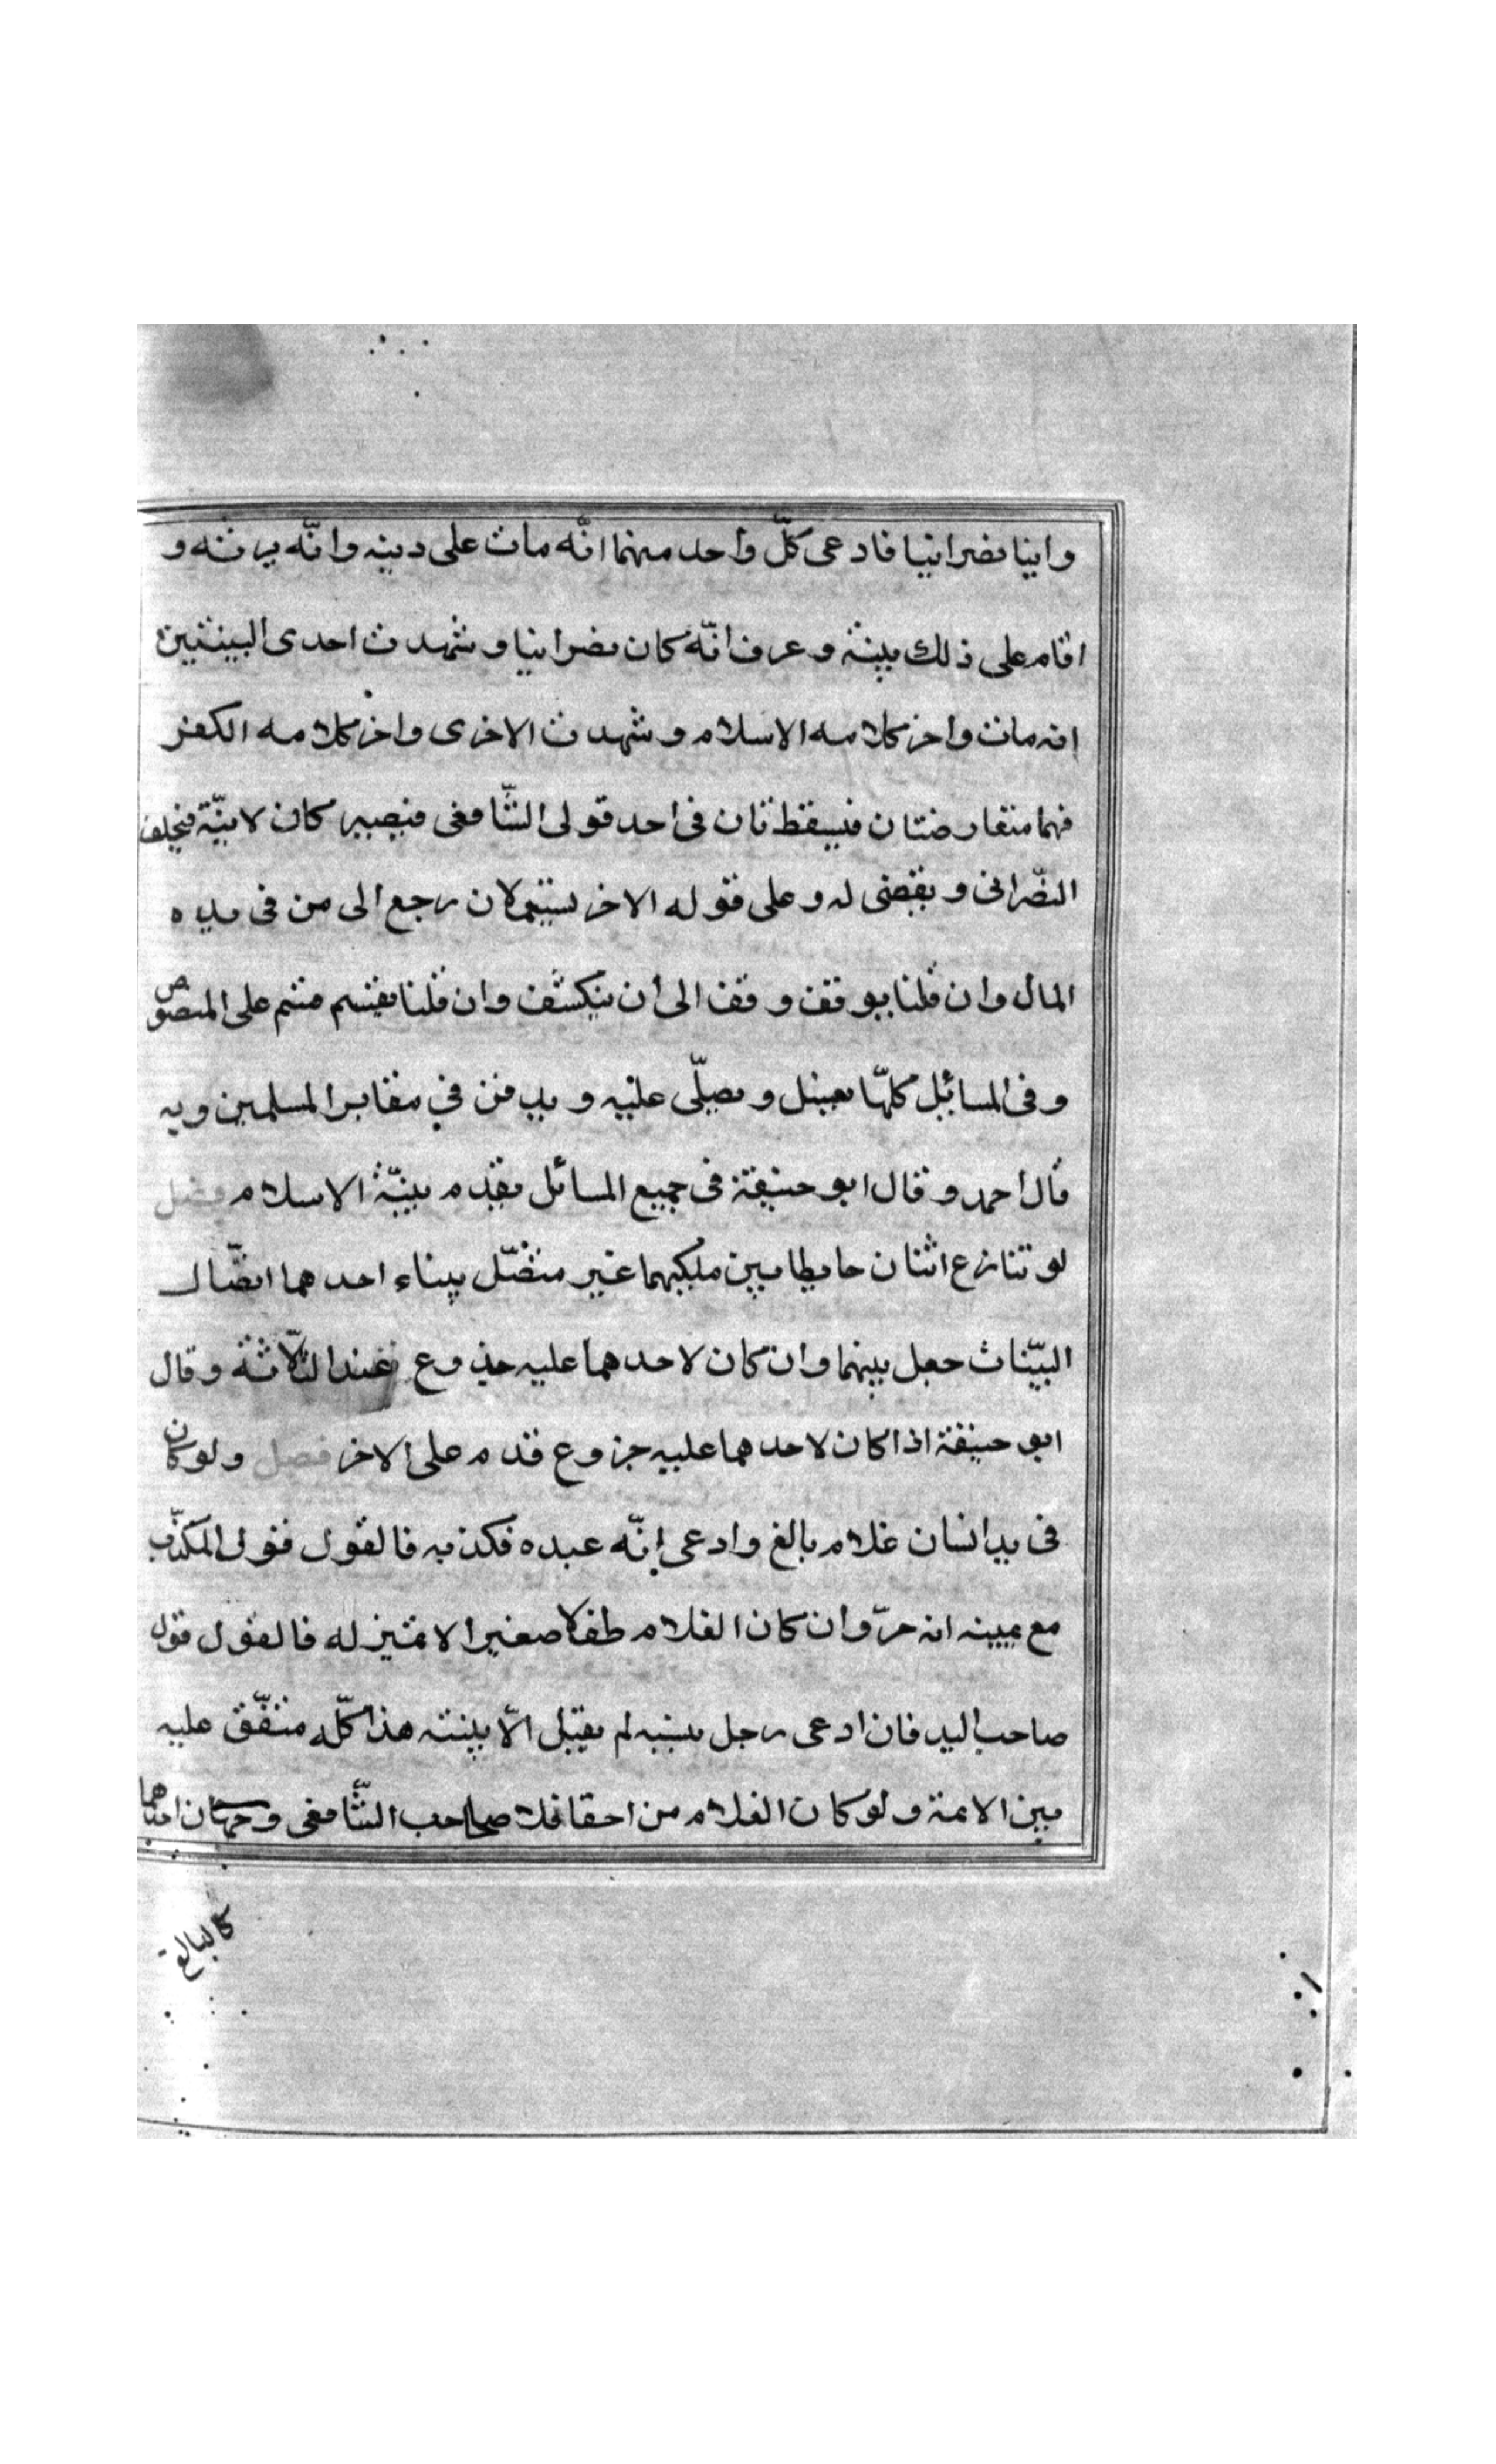 وابنا نصرانيا فادعى كلّ واحد منهما انّه مات على دينه وانّه يرثه و
اقام على ذلك بينة وعرف انّه كان نصرانيا وشهدت احدى البينتين
انه مات واخر كلامه الاسلام وشهدت الاخرى واخر كلامه الكفر
فهما متعارضتان فيسقطتان فى احد قولى الشّافعى فيصير كان لا بيّنة فيحلف
النصّرانى ويقضى له وعلى قوله الاخر يستعملان رجع الى من فى يده
المال وان قلنا يوقف وقف الى ان ينكشف وان قلنا يقسم قسم على المنصوص
وفى المسائل كلّها يغسل ويصلّى عليه ويدفن في مقابر المسلمين وبه
قال احمد وقال ابو حنيفة فى جميع المسائل يقدم بيّنة الاسلام فصل
لو تنازع اثنان حايطا بين ملكيهما غير متصّل ببناء احدهما اتصّال
البيّنات جعل بينهما وان كان لاحدهما عليه جذوع عند الثّلاثة وقال
ابو حنيفة اذا كان لاحدهما عليه جزوع قدم على الاخر فصل ولو كان
فى يد انسان غلام بالغ وادعى انّه عبده فكذبه فالقول قول المكذّب
مع يمينه انه حرّ وان كان الغلام طفلا صغيرا لا تميز له فالقول قول
صاحب اليد فان ادعى رجل نسبه لم يقبل الّا ببينته هذا كلّه متفّق عليه
بين الائمة ولو كان الغلام من احقا فلا صحاحب الشّافعى وجهان احدهما
كالبالغ